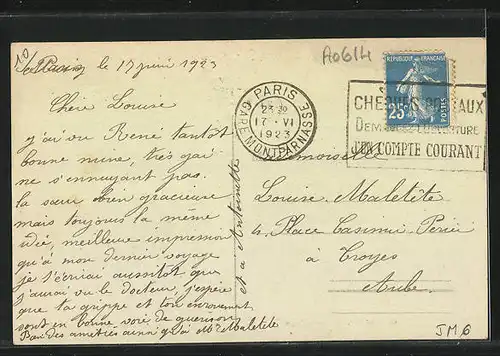 10/ Paris le 17 juin 1923
A0614
REPUBLIQUE FRANÇAISE
25
POSTES
PARIS
23
17 - VI
1923
GARE MONTPARNASSE
CHEQUES POSTAUX
DEMANDEZ L'OUVERTURE
D'UN COMPTE COURANT
Chère Louise
J'ai vu René tantôt
bonne mine, très gai
ne s'ennuyant pas.
la sœur bien gracieuse
mais toujours la même
idée, meilleure impression
qu'à mon dernier voyage
je t'écrirai aussitôt que
j'aurai vu le docteur, j'espère
que ta grippe et ton enrouement
sont en bonne voie de guérison
Bien des amitiés ainsi qu'à Mr Maletête
et à Antoinette
Mademoiselle
Louise Maletête
4, Place Casimir Perier
à Troyes
Aube
JM6